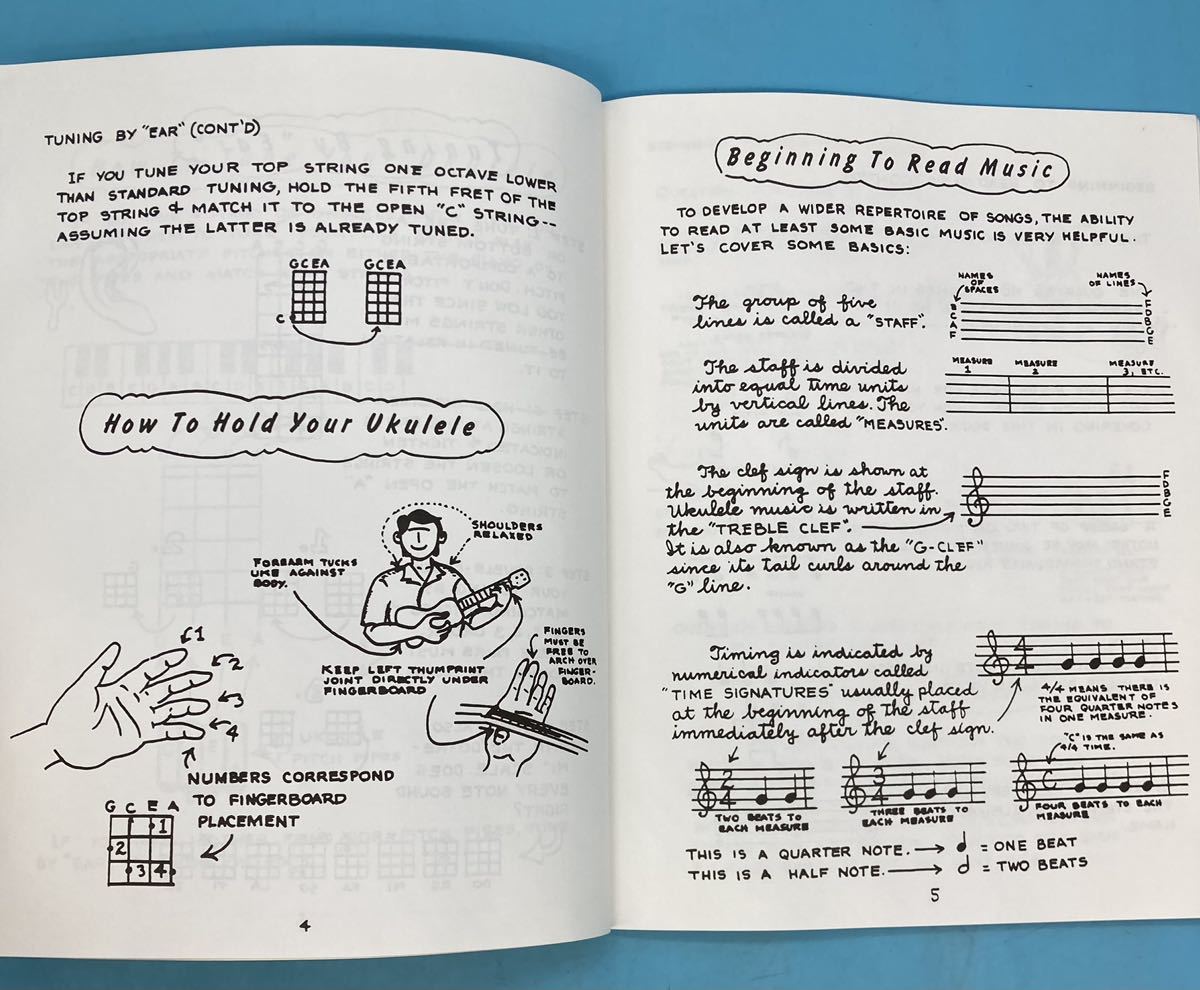 TUNING BY "EAR" (CONT'D)
IF YOU TUNE YOUR TOP STRING ONE OCTAVE LOWER
THAN STANDARD TUNING, HOLD THE FIFTH FRET OF THE
TOP STRING & MATCH IT TO THE OPEN "C" STRING--
ASSUMING THE LATTER IS ALREADY TUNED.
GCEA GCEA
C
How To Hold Your Ukulele
SHOULDERS
RELAXED
FOREARM TUCKS
UKE AGAINST
BODY.
KEEP LEFT THUMPRINT
JOINT DIRECTLY UNDER
FINGERBOARD
FINGERS
MUST BE
FREE TO
ARCH OVER
FINGER-
BOARD.
1
2
3
4
NUMBERS CORRESPOND
TO FINGERBOARD
PLACEMENT
G C E A
1
2
3 4
4
Beginning To Read Music
TO DEVELOP A WIDER REPERTOIRE OF SONGS, THE ABILITY
TO READ AT LEAST SOME BASIC MUSIC IS VERY HELPFUL.
LET'S COVER SOME BASICS:
The group of five
lines is called a "STAFF".
NAMES
OF
SPACES
NAMES
OF LINES
E
C
A
F
F
D
B
G
E
The staff is divided
into equal time units
by vertical lines. The
units are called "MEASURES".
MEASURE
1
MEASURE
2
MEASURE
3, ETC.
The clef sign is shown at
the beginning of the staff.
Ukulele music is written in
the "TREBLE CLEF".
It is also known as the "G-CLEF"
since its tail curls around the
"G" line.
F
D
B
G
E
Timing is indicated by
numerical indicators called
"TIME SIGNATURES" usually placed
at the beginning of the staff
immediately after the clef sign.
4
4
4/4 MEANS THERE IS
THE EQUIVALENT OF
FOUR QUARTER NOTES
IN ONE MEASURE.
2
4
TWO BEATS TO
EACH MEASURE
3
4
THREE BEATS TO
EACH MEASURE
"C" IS THE SAME AS
4/4 TIME.
C
FOUR BEATS TO EACH
MEASURE
THIS IS A QUARTER NOTE. = ONE BEAT
THIS IS A HALF NOTE. = TWO BEATS
5